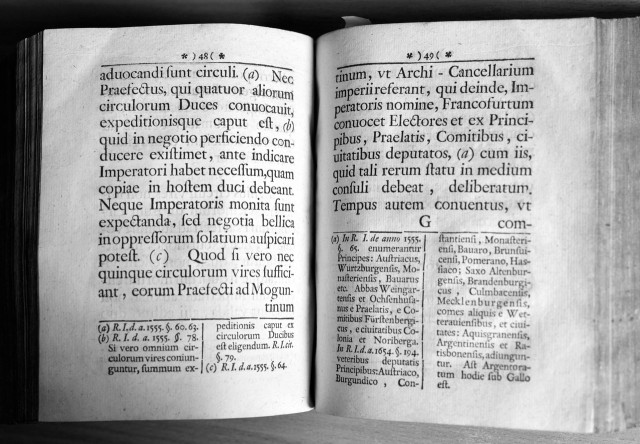 * ) 48 ( *
aduocandi ſunt circuli. (a) Nec
Praefectus, qui quatuor aliorum
circulorum Duces conuocauit,
expeditionisque caput eſt, (b)
quid in negotio perficiendo con-
ducere exiſtimet, ante indicare
Imperatori habet neceſſum, quam
copiae in hoſtem duci debeant.
Neque Imperatoris monita ſunt
expectanda, ſed negotia bellica
in oppreſſorum ſolatium auſpicari
poteſt. (c) Quod ſi vero nec
quinque circulorum vires ſuffici-
ant, eorum Praefecti ad Mogun-
tinum
(a) R. I. d. a. 1555. §. 60. 63.
(b) R. I. d. a. 1555. §. 78.
Si vero omnium cir-
culorum vires coniun-
guntur, ſummum ex-
peditionis caput ex
circulorum Ducibus
eſt eligendum. R. I. cit.
§. 79.
(c) R. I. d. a. 1555. §. 64.
* ) 49 ( *
tinum, vt Archi - Cancellarium
imperii referant, qui deinde, Im-
peratoris nomine, Francofurtum
conuocet Electores et ex Princi-
pibus, Praelatis, Comitibus, ci-
uitatibus deputatos, (a) cum iis,
quid tali rerum ſtatu in medium
conſuli debeat, deliberatum.
Tempus autem conuentus, vt
G com-
(a) In R. I. de anno 1555.
§. 65. enumerantur
Principes: Auſtriacus,
Wurtzburgenſis, Mo-
naſterienſis, Bauarus
etc. Abbas Weingar-
tenſis et Ochſenhuſa-
nus e Praelatis, e Co-
mitibus Fürſtenbergi-
cus, e ciuitatibus Co-
lonia et Noriberga.
In R. I. d. a. 1654. §. 194.
veteribus deputatis
Principibus: Auſtriaco,
Burgundico, Con-
ſtantienſi, Monaſteri-
enſi, Bauaro, Brunſui-
cenſi, Pomerano, Haſ-
ſiaco; Saxo Altenbur-
genſis, Brandenburgi-
cus, Culmbacenſis,
Mecklenburgenſis,
comes aliquis e Wet-
terauienſibus, et ciui-
tates: Aquisgranenſis,
Argentinenſis et Ra-
tisbonenſis, adiungun-
tur. Aſt Argentora-
tum hodie ſub Gallo
eſt.